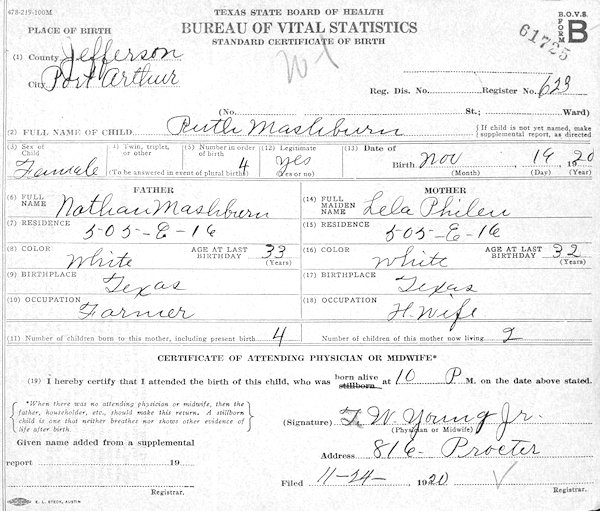 478-219-100M
TEXAS STATE BOARD OF HEALTH
B.O.V.S.
FORM B
PLACE OF BIRTH
BUREAU OF VITAL STATISTICS
STANDARD CERTIFICATE OF BIRTH
61725
(1) County Jefferson
City Port Arthur
Reg. Dis. No. Register No. 623
(No. St.; Ward)
(2) FULL NAME OF CHILD Ruth Mashburn { If child is not yet named, make supplemental report, as directed
(3) Sex of Child Female
(4) Twin, triplet, or other
(5) Number in order of birth 4
(To be answered in event of plural births)
(12) Legitimate yes (Yes or no)
(13) Date of Birth Nov 19 1920
(Month) (Day) (Yr.)
FATHER
(6) FULL NAME Nathan Mashburn
(7) RESIDENCE 505-E-16
(8) COLOR White AGE AT LAST BIRTHDAY 33 (Years)
(9) BIRTHPLACE Texas
(10) OCCUPATION Farmer
MOTHER
(14) FULL MAIDEN NAME Lela Philen
(15) RESIDENCE 505-E-16
(16) COLOR White AGE AT LAST BIRTHDAY 32 (Years)
(17) BIRTHPLACE Texas
(18) OCCUPATION H. Wife
(11) Number of children born to this mother, including present birth 4 Number of children of this mother now living 2
CERTIFICATE OF ATTENDING PHYSICIAN OR MIDWIFE*
(19) I hereby certify that I attended the birth of this child, who was born alive stillborn at 10 P M. on the date above stated.
{ *When there was no attending physician or midwife, then the father, householder, etc., should make this return. A stillborn child is one that neither breathes nor shows other evidence of life after birth. }
(Signature) W. Young Jr.
(Physician or Midwife)
Address 816- Procter
Given name added from a supplemental
report 19
Filed 11-24- 1920
Registrar. Registrar.
E. L. STECK, AUSTIN